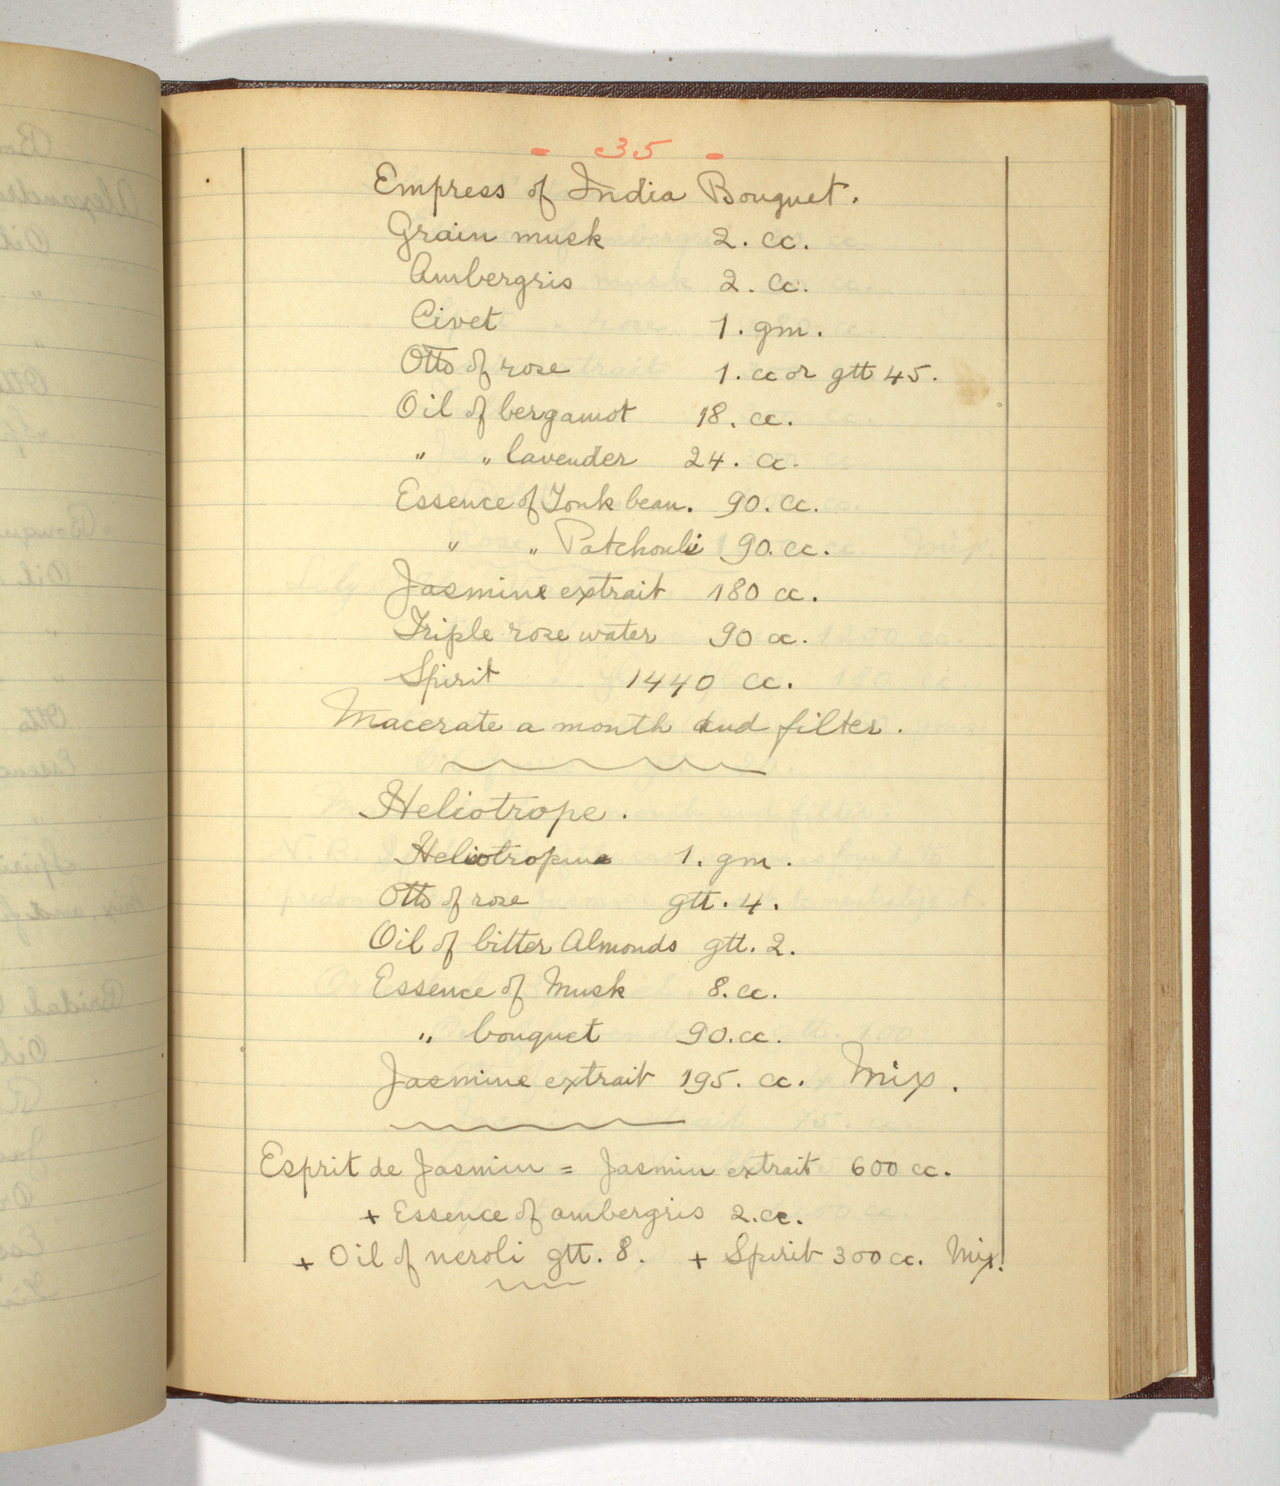 - 35 -
Empress of India Bouquet.
Grain musk 2. cc.
Ambergris 2. cc.
Civet 1. gm.
Otto of rose 1. cc or gtt 45.
Oil of bergamot 18. cc.
" " lavender 24. cc.
Essence of Tonk bean. 90. cc.
" " Patchouli 90. cc.
Jasmine extrait 180 cc.
Triple rose water 90 cc.
Spirit 1440 cc.
Macerate a month and filter.
Heliotrope.
Heliotropine 1. gm.
Otto of rose gtt. 4.
Oil of bitter Almonds gtt. 2.
Essence of Musk 8. cc.
" bouquet 90. cc.
Jasmine extrait 195. cc. Mix.
Esprit de Jasmin = Jasmin extrait 600 cc.
+ Essence of ambergris 2. cc.
+ Oil of neroli gtt. 8. + Spirit 300 cc. Mix.